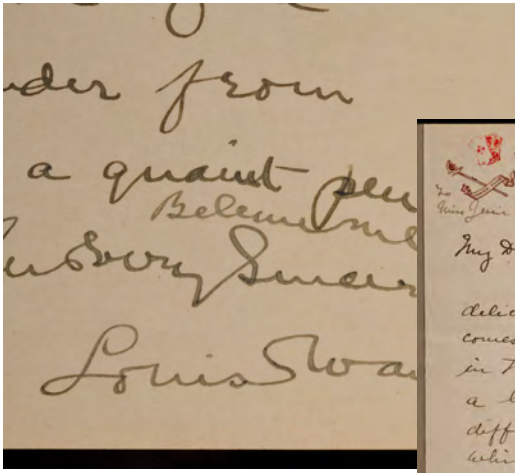 der from
a quaint pen
Believe me
Very Sincer
Louis
To
Miss
My D
delic
comes
in
a l
diff
whi